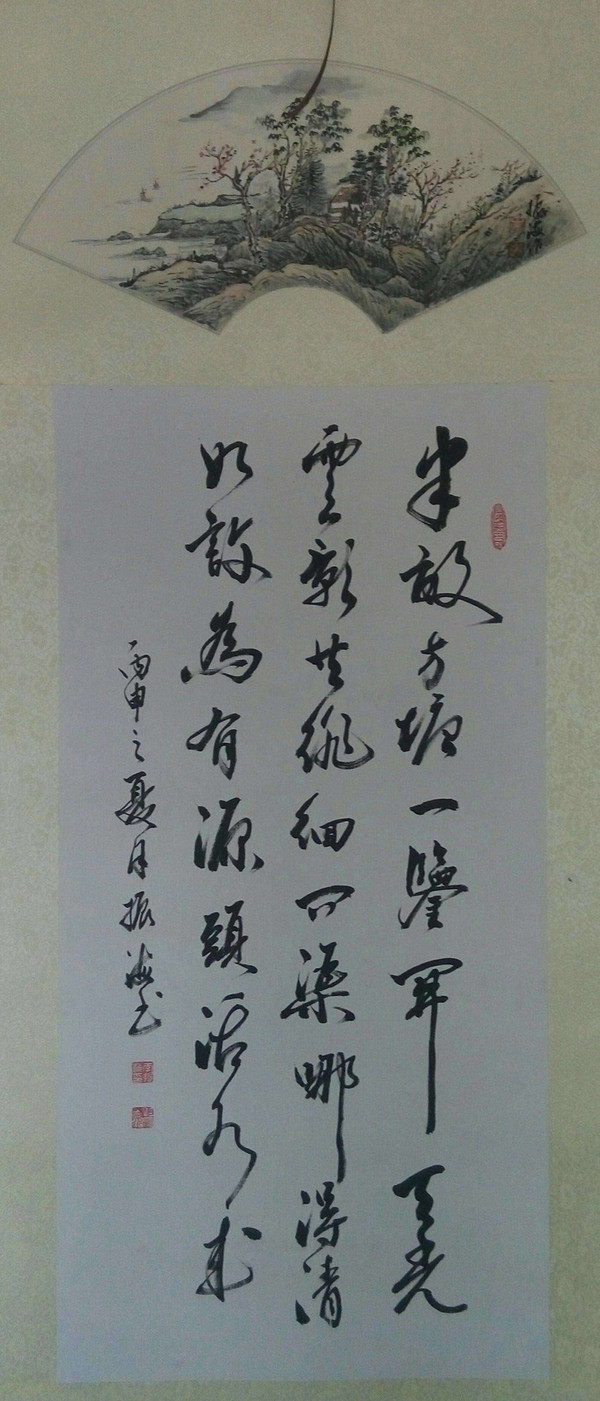 半畝方塘一鑒開天光
雲影共徘徊問渠哪得清
如許為有源頭活水來
丙申之夏月振海書